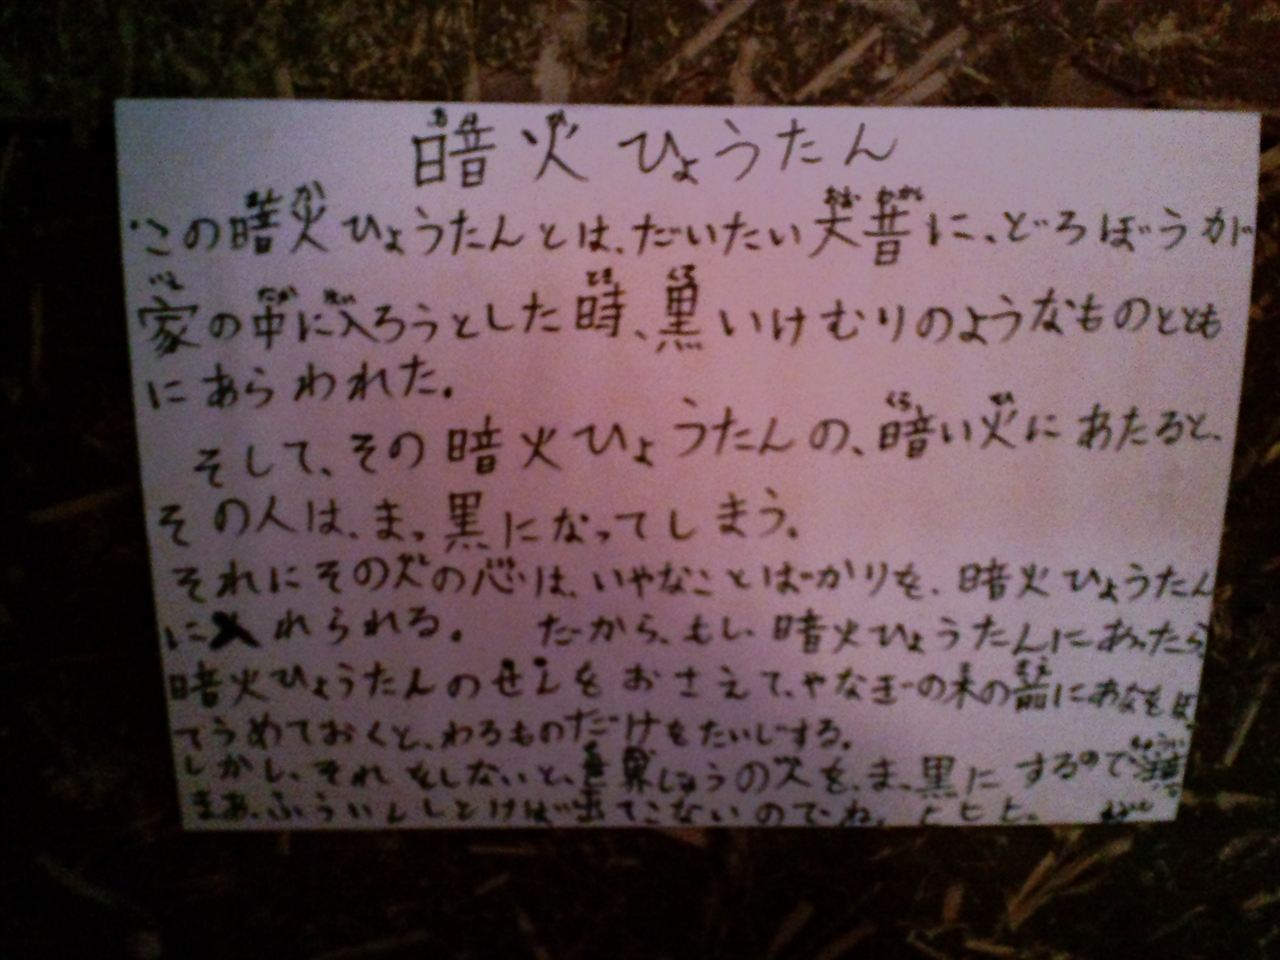 暗火ひょうたん
この暗火ひょうたんとは、だいたい大昔に、どろぼうが
家の中に入ろうとした時、黒いけむりのようなものととも
にあらわれた。
そして、その暗火ひょうたんの、暗い火にあたると、
その人は、まっ黒になってしまう。
それにその人の心は、いやなことばかりを、暗火ひょうたん
に入れられる。 だから、もし暗火ひょうたんにあったら
暗火ひょうたんのせんをおさえて、やなぎの木の前にあなをほっ
てうめておくと、わるものだけをたいじする。
しかし、それをしないと、世界じゅうの人を、まっ黒にするので
まあ、ふういんしとけば出てこないのでね。ヒヒヒ、